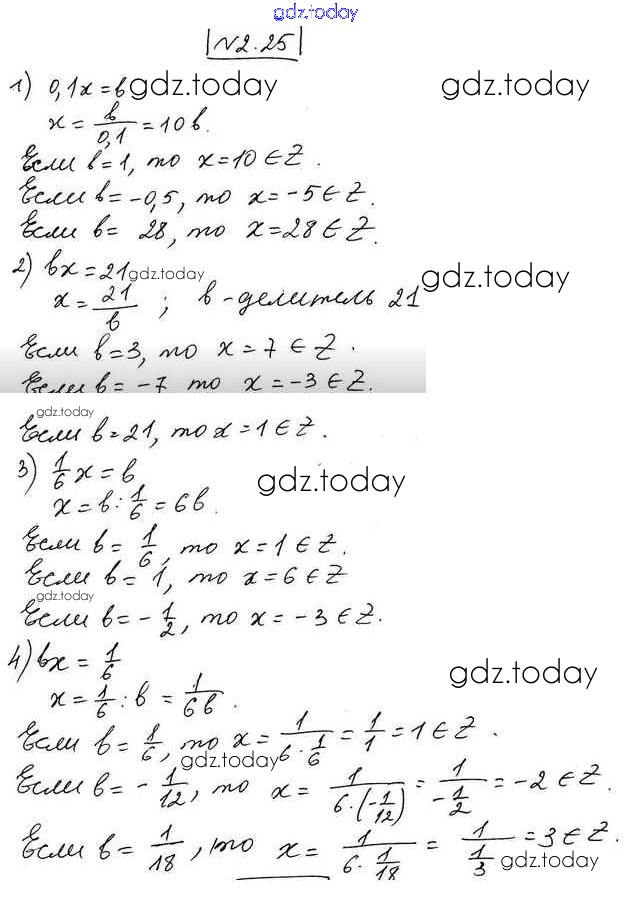 gdz.today
№2.25
1) 0,1x = b gdz.today gdz.today
x = b/0,1 = 10b.
Если b = 1, то x = 10 ∈ Z.
Если b = -0,5, то x = -5 ∈ Z.
Если b = 28, то x = 28 ∈ Z.
2) bx = 21 gdz.today gdz.today
x = 21/b ; b - делитель 21
Если b = 3, то x = 7 ∈ Z.
Если b = -7 то x = -3 ∈ Z.
gdz.today
Если b = 21, то x = 1 ∈ Z.
3) 1/6 x = b gdz.today
x = b : 1/6 = 6b.
Если b = 1/6, то x = 1 ∈ Z.
Если b = 1, то x = 6 ∈ Z
gdz.today
Если b = -1/2, то x = -3 ∈ Z.
4) bx = 1/6 gdz.today
x = 1/6 : b = 1/6b.
Если b = 1/6, то x = 1/(6·1/6) = 1/1 = 1 ∈ Z.
gdz.today
Если b = -1/12, то x = 1/(6·(-1/12)) = 1/(-1/2) = -2 ∈ Z.
Если b = 1/18, то x = 1/(6·1/18) = 1/(1/3) = 3 ∈ Z.
gdz.today